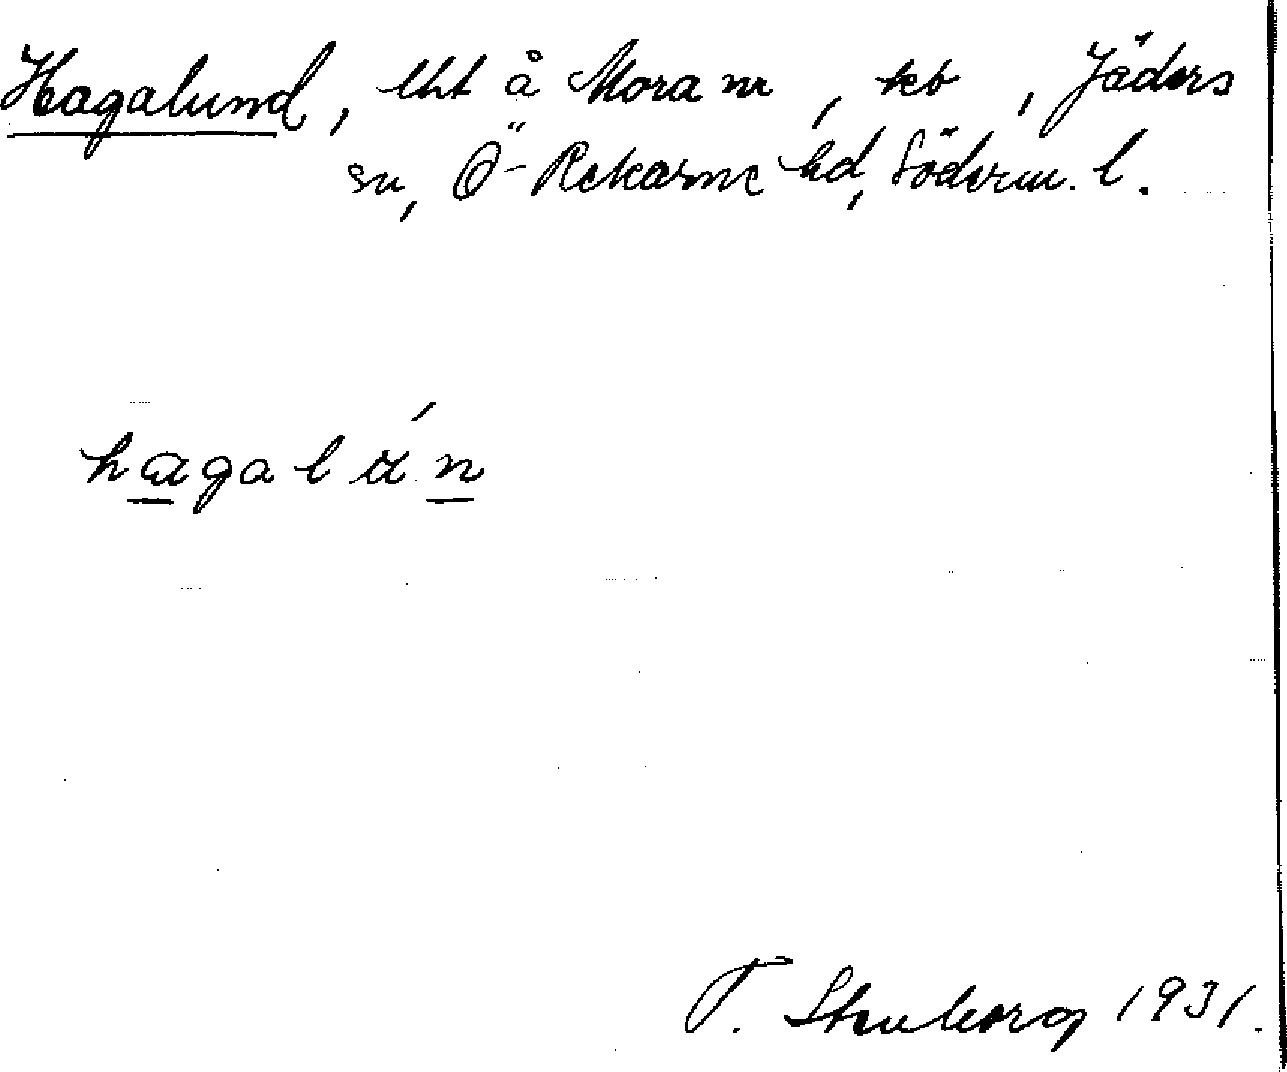 Hagalund, lht å Mora nr , kb , Jäders
sn, Ö-Rekarne hd, Söderm. l.
hagalún
T. Stenborg 1931.